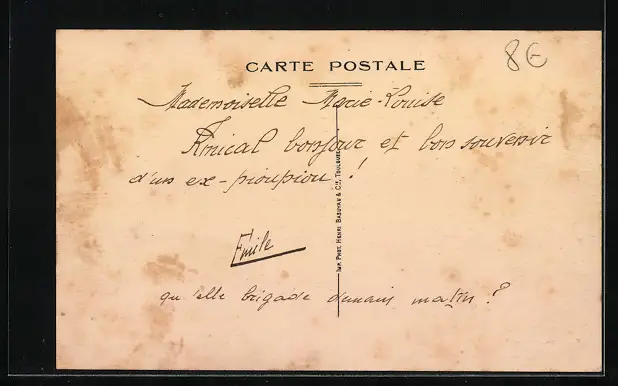 CARTE POSTALE
8€
Mademoiselle Marie-Louise
Amical bonjour et bon souvenir
d'un ex-pioupiou !
Emile
qu'elle brigade demain matin ?
IMP. PHOT. HENRI BASUYAU & Cie, TOULOUSE